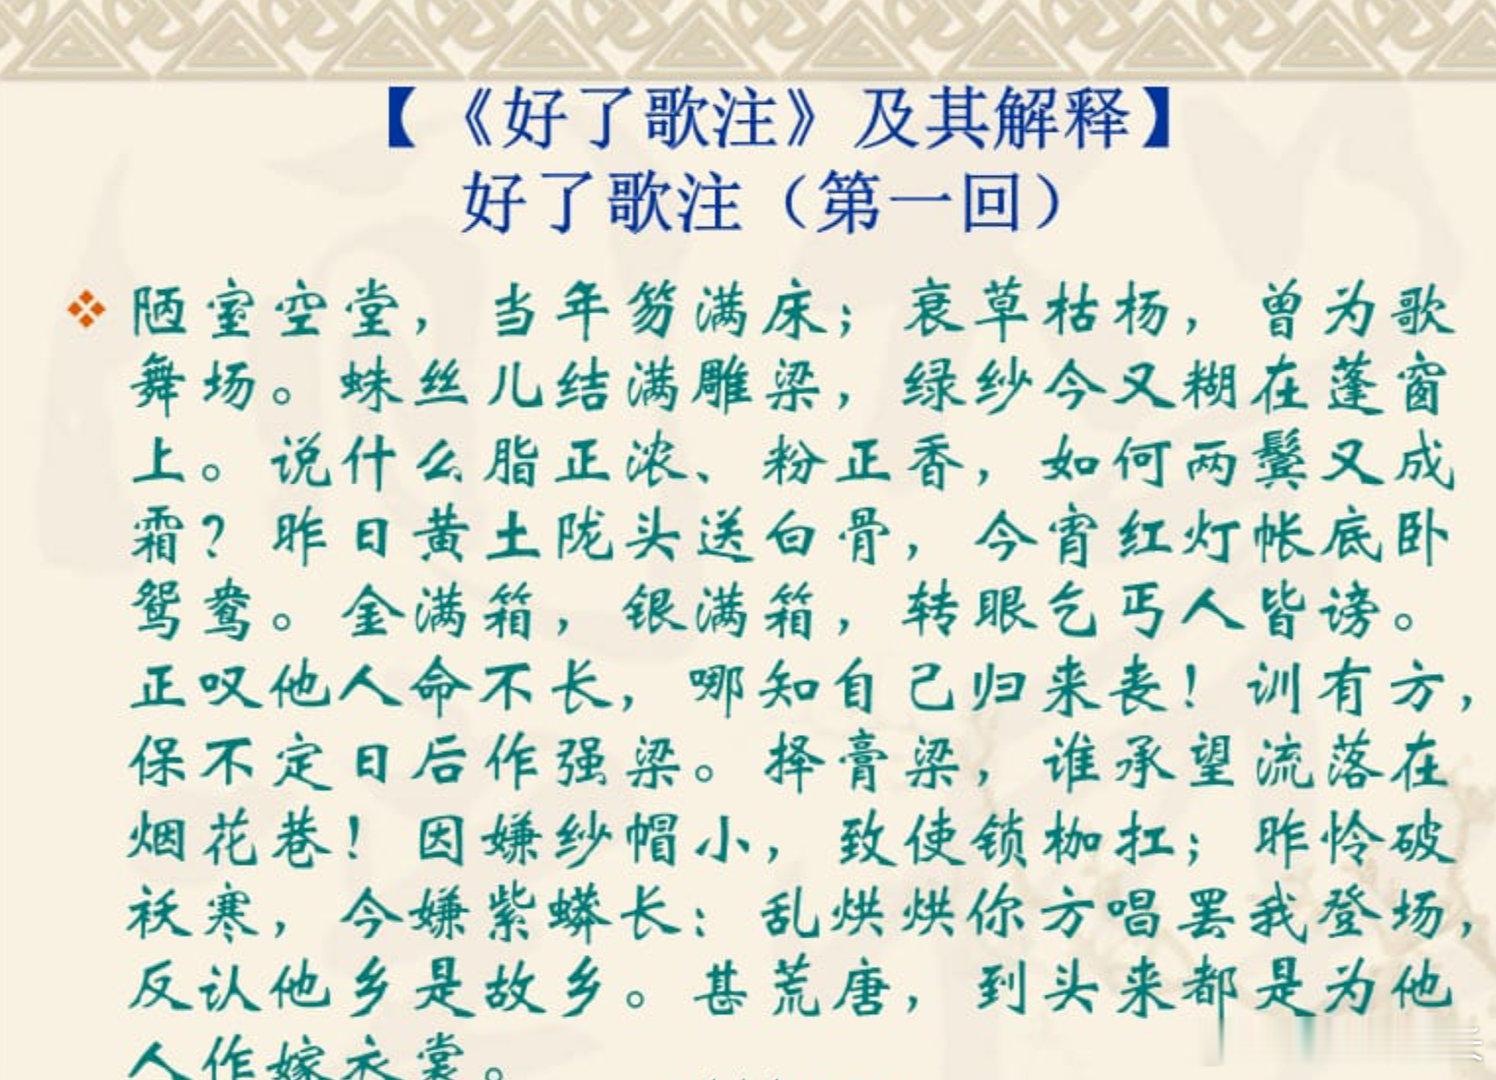 【《好了歌注》及其解释】
好了歌注（第一回）
陋室空堂，当年笏满床；衰草枯杨，曾为歌
舞场。蛛丝儿结满雕梁，绿纱今又糊在蓬窗
上。说什么脂正浓、粉正香，如何两鬓又成
霜？昨日黄土陇头送白骨，今宵红灯帐底卧
鸳鸯。金满箱，银满箱，转眼乞丐人皆谤。
正叹他人命不长，哪知自己归来丧！训有方，
保不定日后作强梁。择膏梁，谁承望流落在
烟花巷！因嫌纱帽小，致使锁枷扛；昨怜破
袄寒，今嫌紫蟒长：乱烘烘你方唱罢我登场，
反认他乡是故乡。甚荒唐，到头来都是为他
人作嫁衣裳。